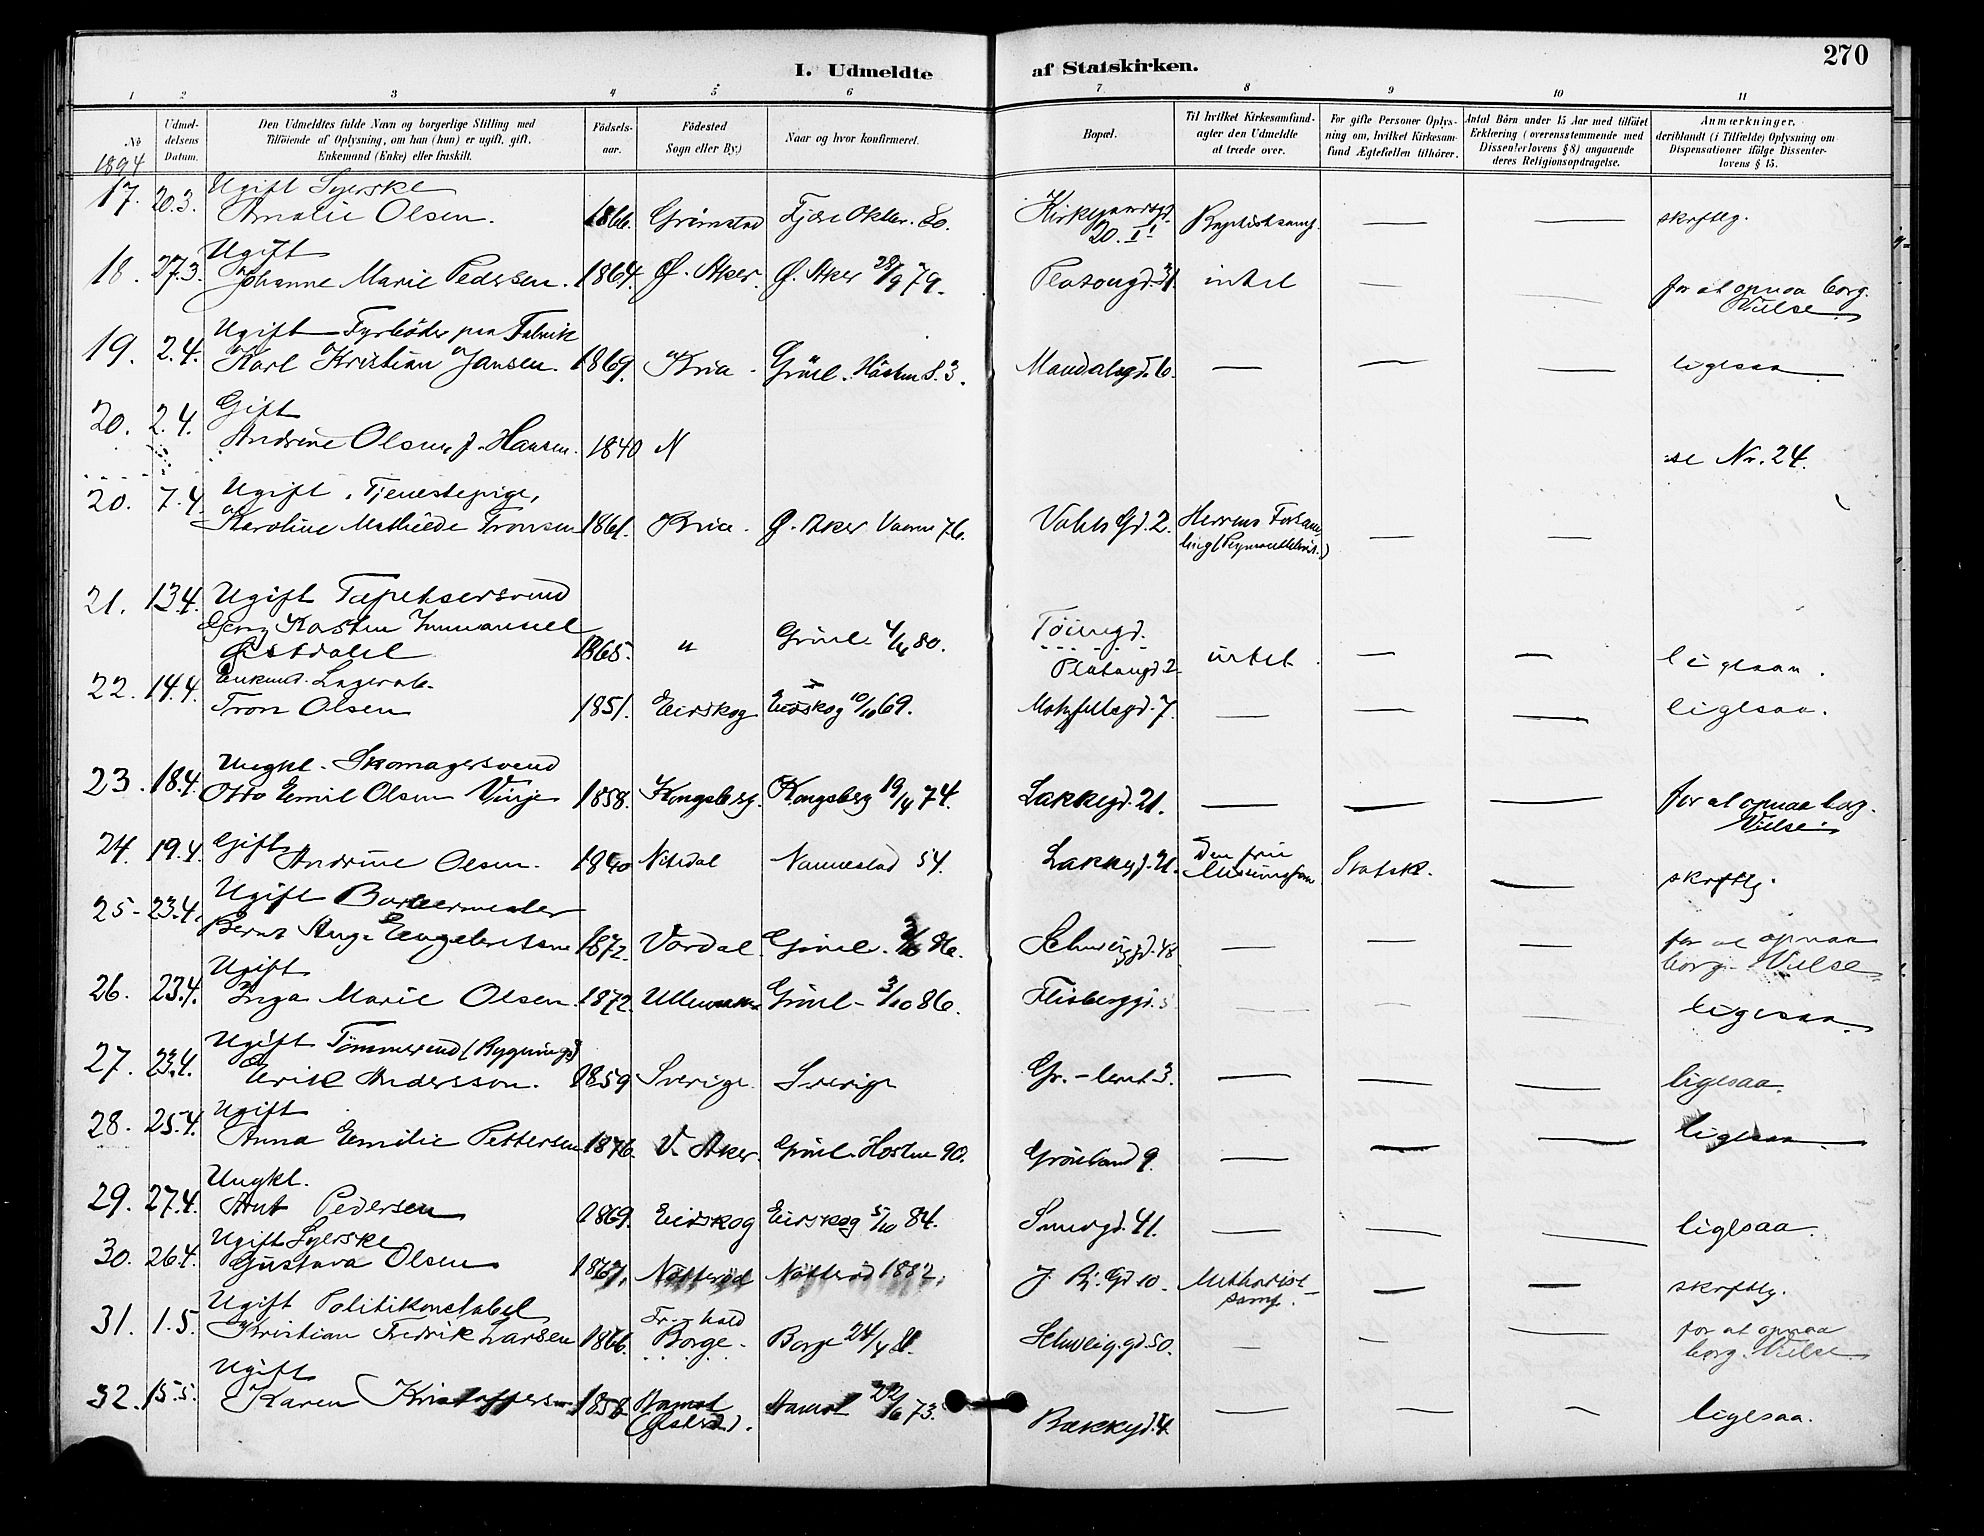 270
I. Udmeldte af Statskirken.
1 2 3 4 5 6 7 8 9 10 11
No
1894
Udmeldelsens Datum.
Den Udmeldtes fulde Navn og borgerlige Stilling med
Tilföiende af Oplysning, om han (hun) er ugift, gift,
Enkemand (Enke) eller fraskilt.
Födselsaar.
Födested
Sogn eller By.)
Naar og hvor konfirmeret.
Bopæl.
Til hvilket Kirkesamfund
agter den Udmeldte
at træde over.
For gifte Personer Oplys-
ning om, hvilket Kirkesam-
fund Ægtefællen tilhörer.
Antal Börn under 15 Aar med tilföiet
Erklæring (overensstemmende med
Dissenterlovens § 8) angaaende
deres Religionsopdragelse.
Anmærkninger,
deriblandt (i Tilfælde) Oplysning om
Dispensationer ifölge Dissenter-
lovens § 15.
Ugift Syerske
17. 20.3. Amalie Olsen. 1866. Grimstad Okbr. 80. 20. II — — skrftlg.
Ugift
18. 27.3. Johanne Marie Pedersen. 1864. Ø. Aker. Ø. Aker 28/9 79. intet — — for at opnaa borg.
Vielse
Ugift Fyrböder paa Fabrik
19. 2.4. Karl Kristian Jansen. 1869. Kria. Grönl. Hösten 83. Mandalsgd. 6. — — — ligesaa
Gift
20. 2.4. Andrine Olsen, f. Hansen. 1840 N se Nr. 24.
Ugift, Tjenestepige,
20. 7.4. Karoline Mathilde Tronsen 1861. Kria. Ø. Aker Vaaren 76. Vahls Gd. 2. Herrens Forsam-
ling — —
21. 13.4. Ugift Tapetsersvend
Georg Karsten Immanuel
Østdahl 1865. " Grönl. 4/4 80. Töiengd.
Platougd. 2 intet — — ligesaa.
Enkmd. Lagerarb.
22. 14.4. Tron Olsen 1851. Eidskog Eidskog 10/10 69. Motzfeldtsgd. 7. — — — ligesaa.
Ungkl. Skomagersvend
23. 18.4. Otto Emil Olsen Vinje 1858. Kongsberg. Kongsberg 19/4 74. Lakkegd. 21. — — — for at opnaa borg.
Vielse
Gift
24. 19.4. Andrine Olsen. 1840 Nitedal Nannestad 54. Lakkegd. 21. Den frie
Statsk. — skrftlg.
Ugift Barbermester
25. 23.4. Bernt Aug. Engebretsen 1872. Vardal. Grönl. 86. Schweiggd. 48 — — — for at opnaa
borg. Vielse
Ugift
26. 23.4. Inga Marie Olsen. 1872. Ullensaker Grönl. 3/10 86. Flisberggd. 5 — — — ligesaa
Ugift Tömmermd (Bygnings)
27. 23.4. Erik Andersson. 1859 Sverige. Sverige Gr.-leret 3. — — — ligesaa
Ugift
28. 25.4. Anna Emilie Pettersen 1876. V. Aker. Grönl. Hösten 90. Grönland 9. — — — ligesaa
Ungkl.
29. 27.4. Ant Pedersen 1869. Eidskog Eidskog 5/10 84. Smedgd. 41. — — — ligesaa.
Ugift Syerske
30. 26.4. Gustava Olsen 1867. Nötteröd Nötteröd 1882. 10. Methodist-
samf. — — skrftlg.
Ugift Politikonstabel Fr.-hald
31. 1.5. Kristian Fredrik Larsen 1866. Borge. Borge 24/4 81. Schweig.gd. 50. — — — for at opnaa
borg. Vielse
Ugift
32. 15.5. Karen Kristoffersen 1858. Aamot
(Østerd.). Aamot 22/6 73. Bakkegd. 4 — — — ligesaa.